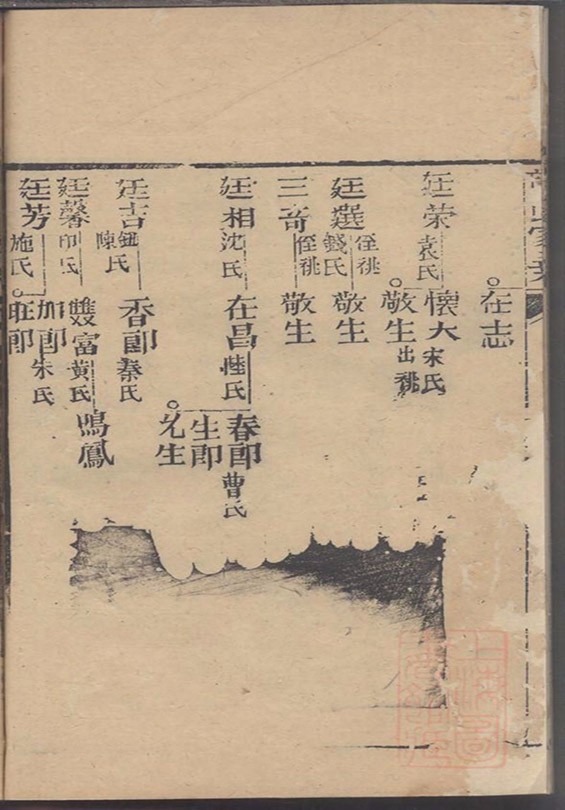 在志
廷荣 袁氏
懷大 宋氏
敬生 出祧
廷選 錢氏
侄祧 敬生
三奇 侄祧 敬生
廷相 沈氏
在昌 陸氏
春郎 曹氏
生郎
廷吉 鈕氏 陳氏
香郎 秦氏
廷馨 印氏
雙富 黃氏
鳴鳳
加郎 朱氏
廷芳 施氏
旺郎